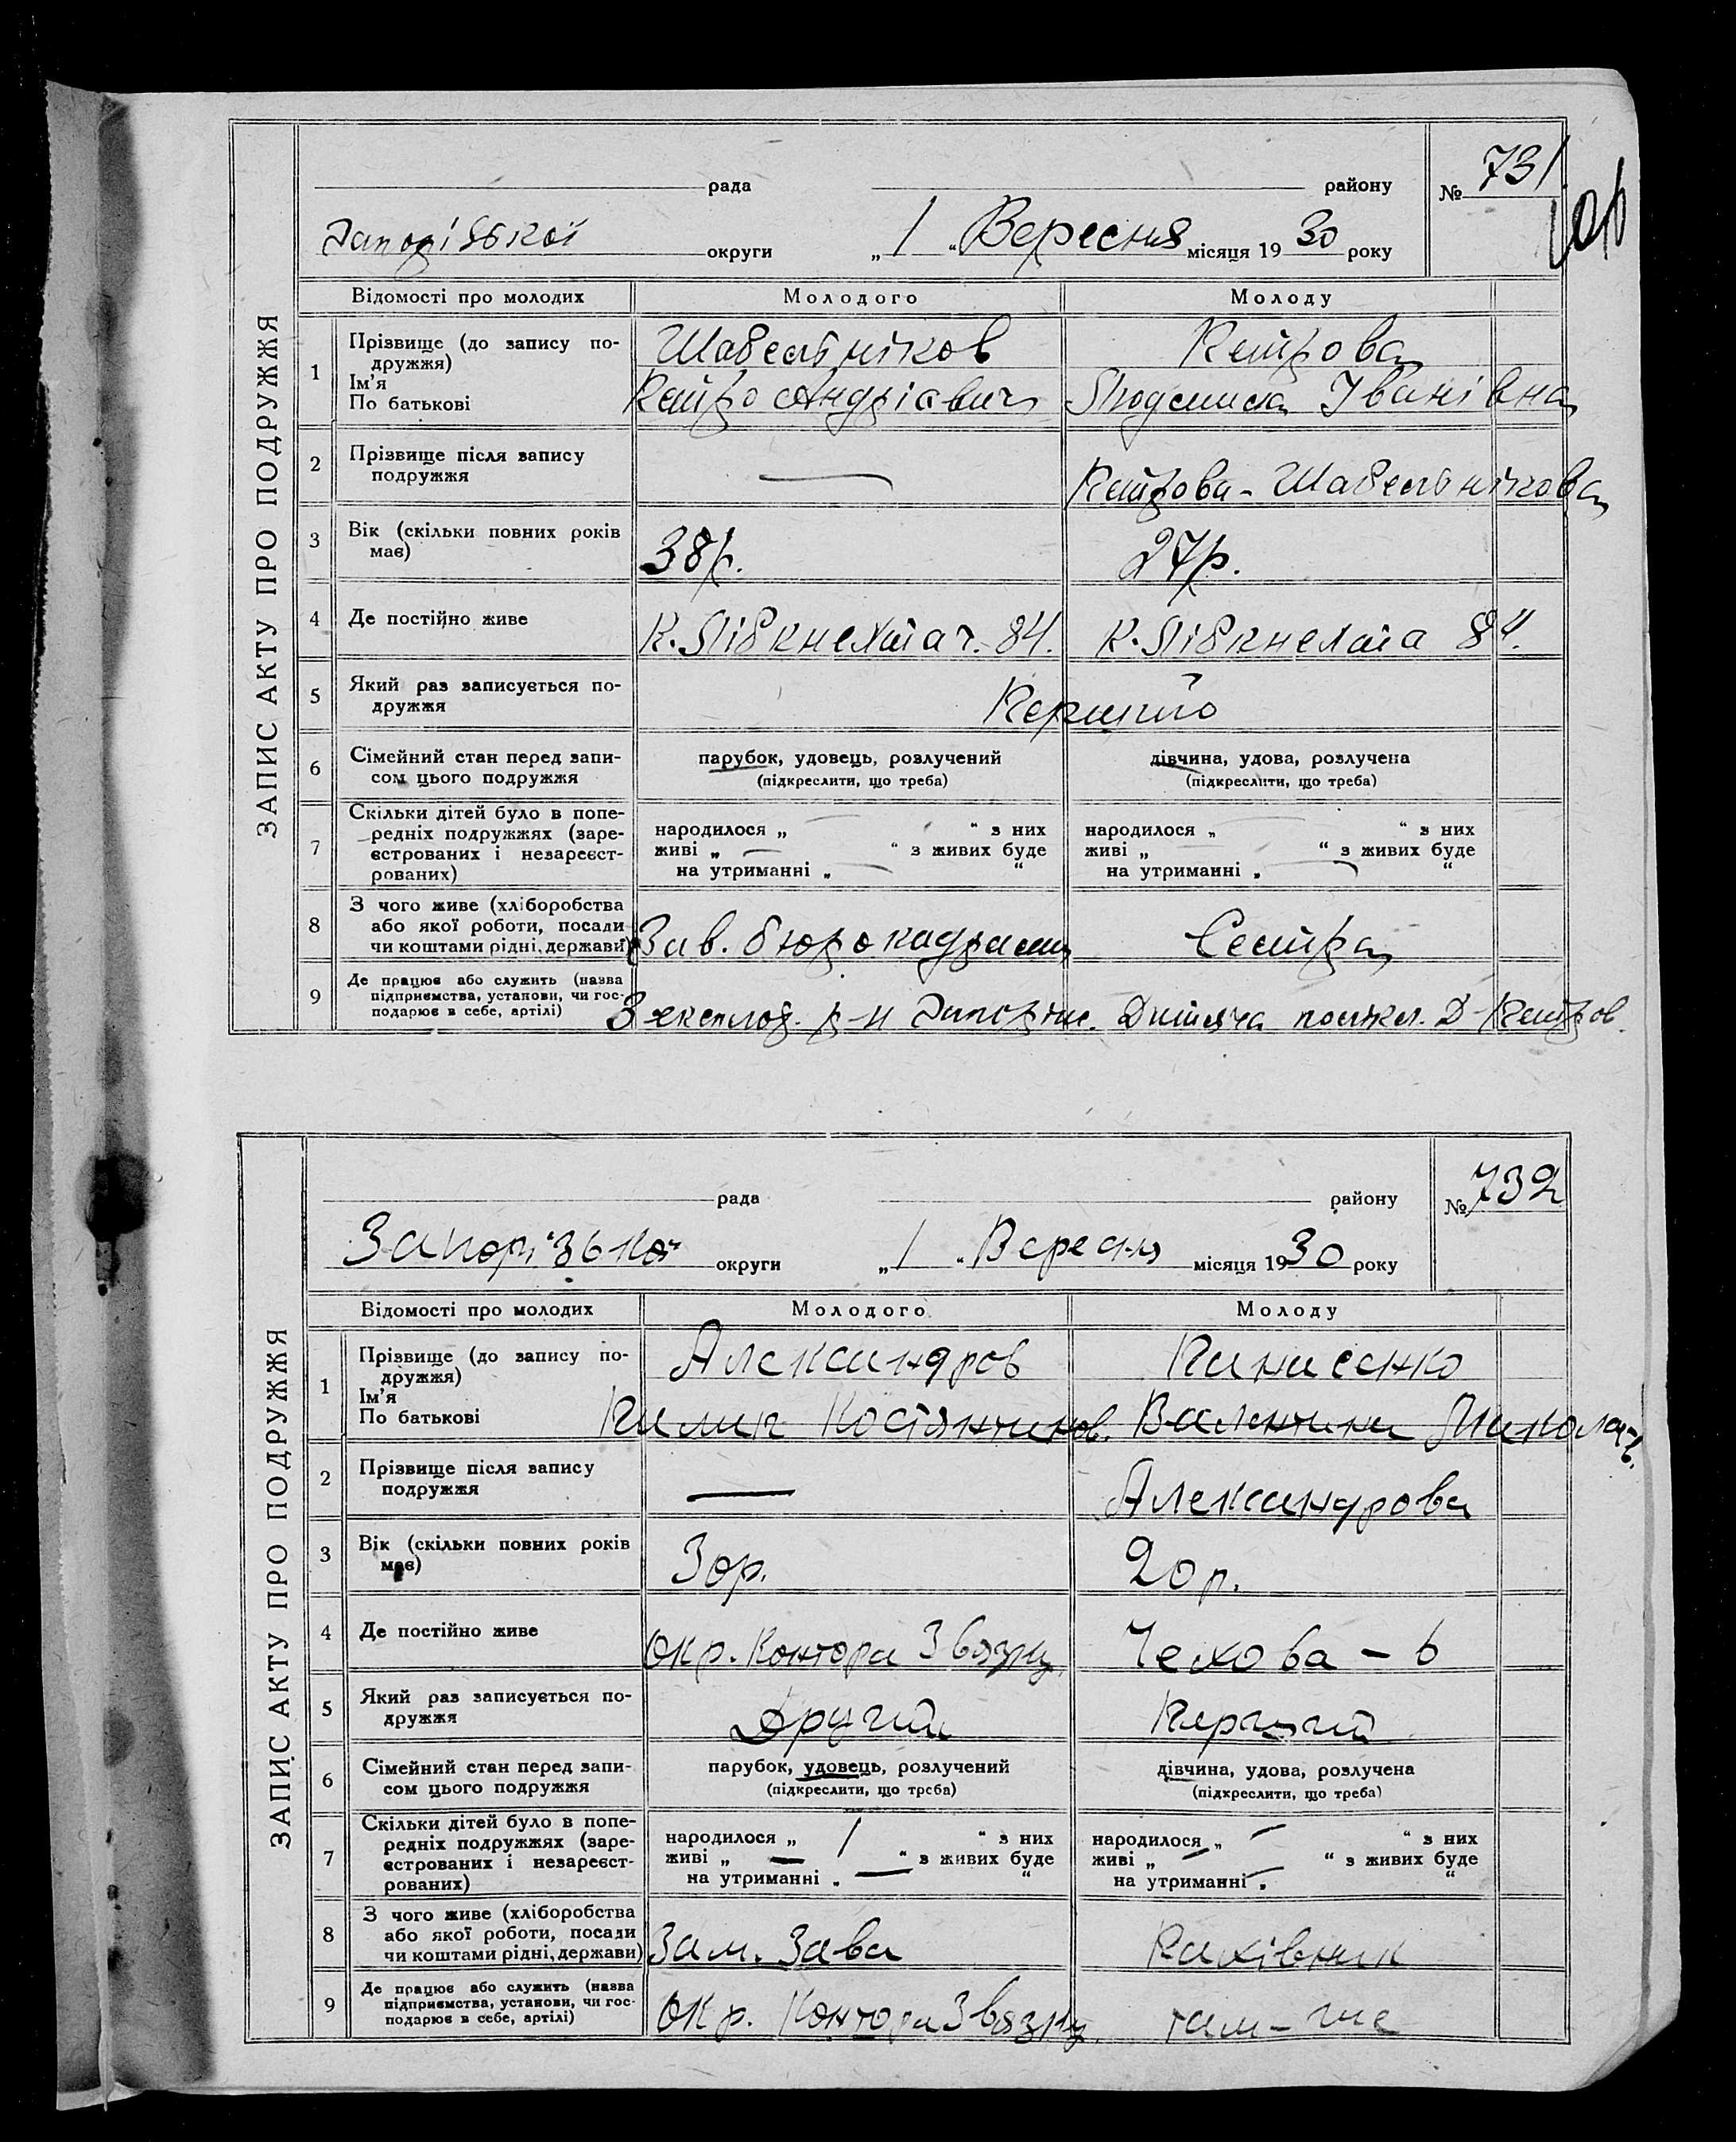 ЗАПИС АКТУ ПРО ПОДРУЖЖЯ
рада району № 731
Запорізької округи „1“ Вересня місяця 1930 року
Відомості про молодих Молодого Молоду
1 Прізвище (до запису по-
дружжя)
Ім'я
По батькові
Шабельніков Петрова
Петро Андрієвич Людмила Іванівна
2 Прізвище після запису
подружжя
— Петрова-Шабельнікова
3 Вік (скільки повних років
має)
38р. 27р.
4 Де постійно живе К. Лібкнехта ч. 84. К. Лібкнехта 84.
5 Який раз записується по-
дружжя
Перший
6 Сімейний стан перед запи-
сом цього подружжя
парубок, удовець, розлучений дівчина, удова, розлучена
(підкреслити, що треба) (підкреслити, що треба)
7 Скільки дітей було в попе-
редніх подружжях (заре-
єстрованих і незареєст-
рованих)
народилося „ — “ з них народилося „ — “ з них
живі „ — “ з живих буде живі „ — “ з живих буде
на утриманні „ — “ на утриманні „ — “
8 З чого живе (хліборобства
або якої роботи, посади
чи коштами рідні, держави)
Зав. бюро кадрами Сестра
9 Де працює або служить (назва
підприємства, установи, чи гос-
подарює в себе, артілі)
З експлоа. р-н Запоріж. Дитяча полікл. Д-Петров.
ЗАПИС АКТУ ПРО ПОДРУЖЖЯ
рада району № 732
Запорізької округи „1“ Вересня місяця 1930 року
Відомості про молодих Молодого Молоду
1 Прізвище (до запису по-
дружжя)
Ім'я
По батькові
Александров
Костянтинов. Валентина Микола-в.
2 Прізвище після запису
подружжя
— Александрова
3 Вік (скільки повних років
має)
30р. 20р.
4 Де постійно живе Окр. Контора Звязку Чехова - 6
5 Який раз записується по-
дружжя
Другий Перший
6 Сімейний стан перед запи-
сом цього подружжя
парубок, удовець, розлучений дівчина, удова, розлучена
(підкреслити, що треба) (підкреслити, що треба)
7 Скільки дітей було в попе-
редніх подружжях (заре-
єстрованих і незареєст-
рованих)
народилося „ 1 “ з них народилося „ — “ з них
живі „ — “ з живих буде живі „ — “ з живих буде
на утриманні „ — “ на утриманні „ — “
8 З чого живе (хліборобства
або якої роботи, посади
чи коштами рідні, держави)
Зам. Зава Рахівник
9 Де працює або служить (назва
підприємства, установи, чи гос-
подарює в себе, артілі)
Окр. Контора Звязку там-же